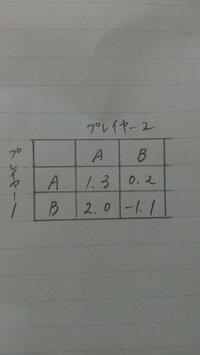 プレイヤー2
プレイヤー1
A B
A 1.3 0.2
B 2.0 -1.1